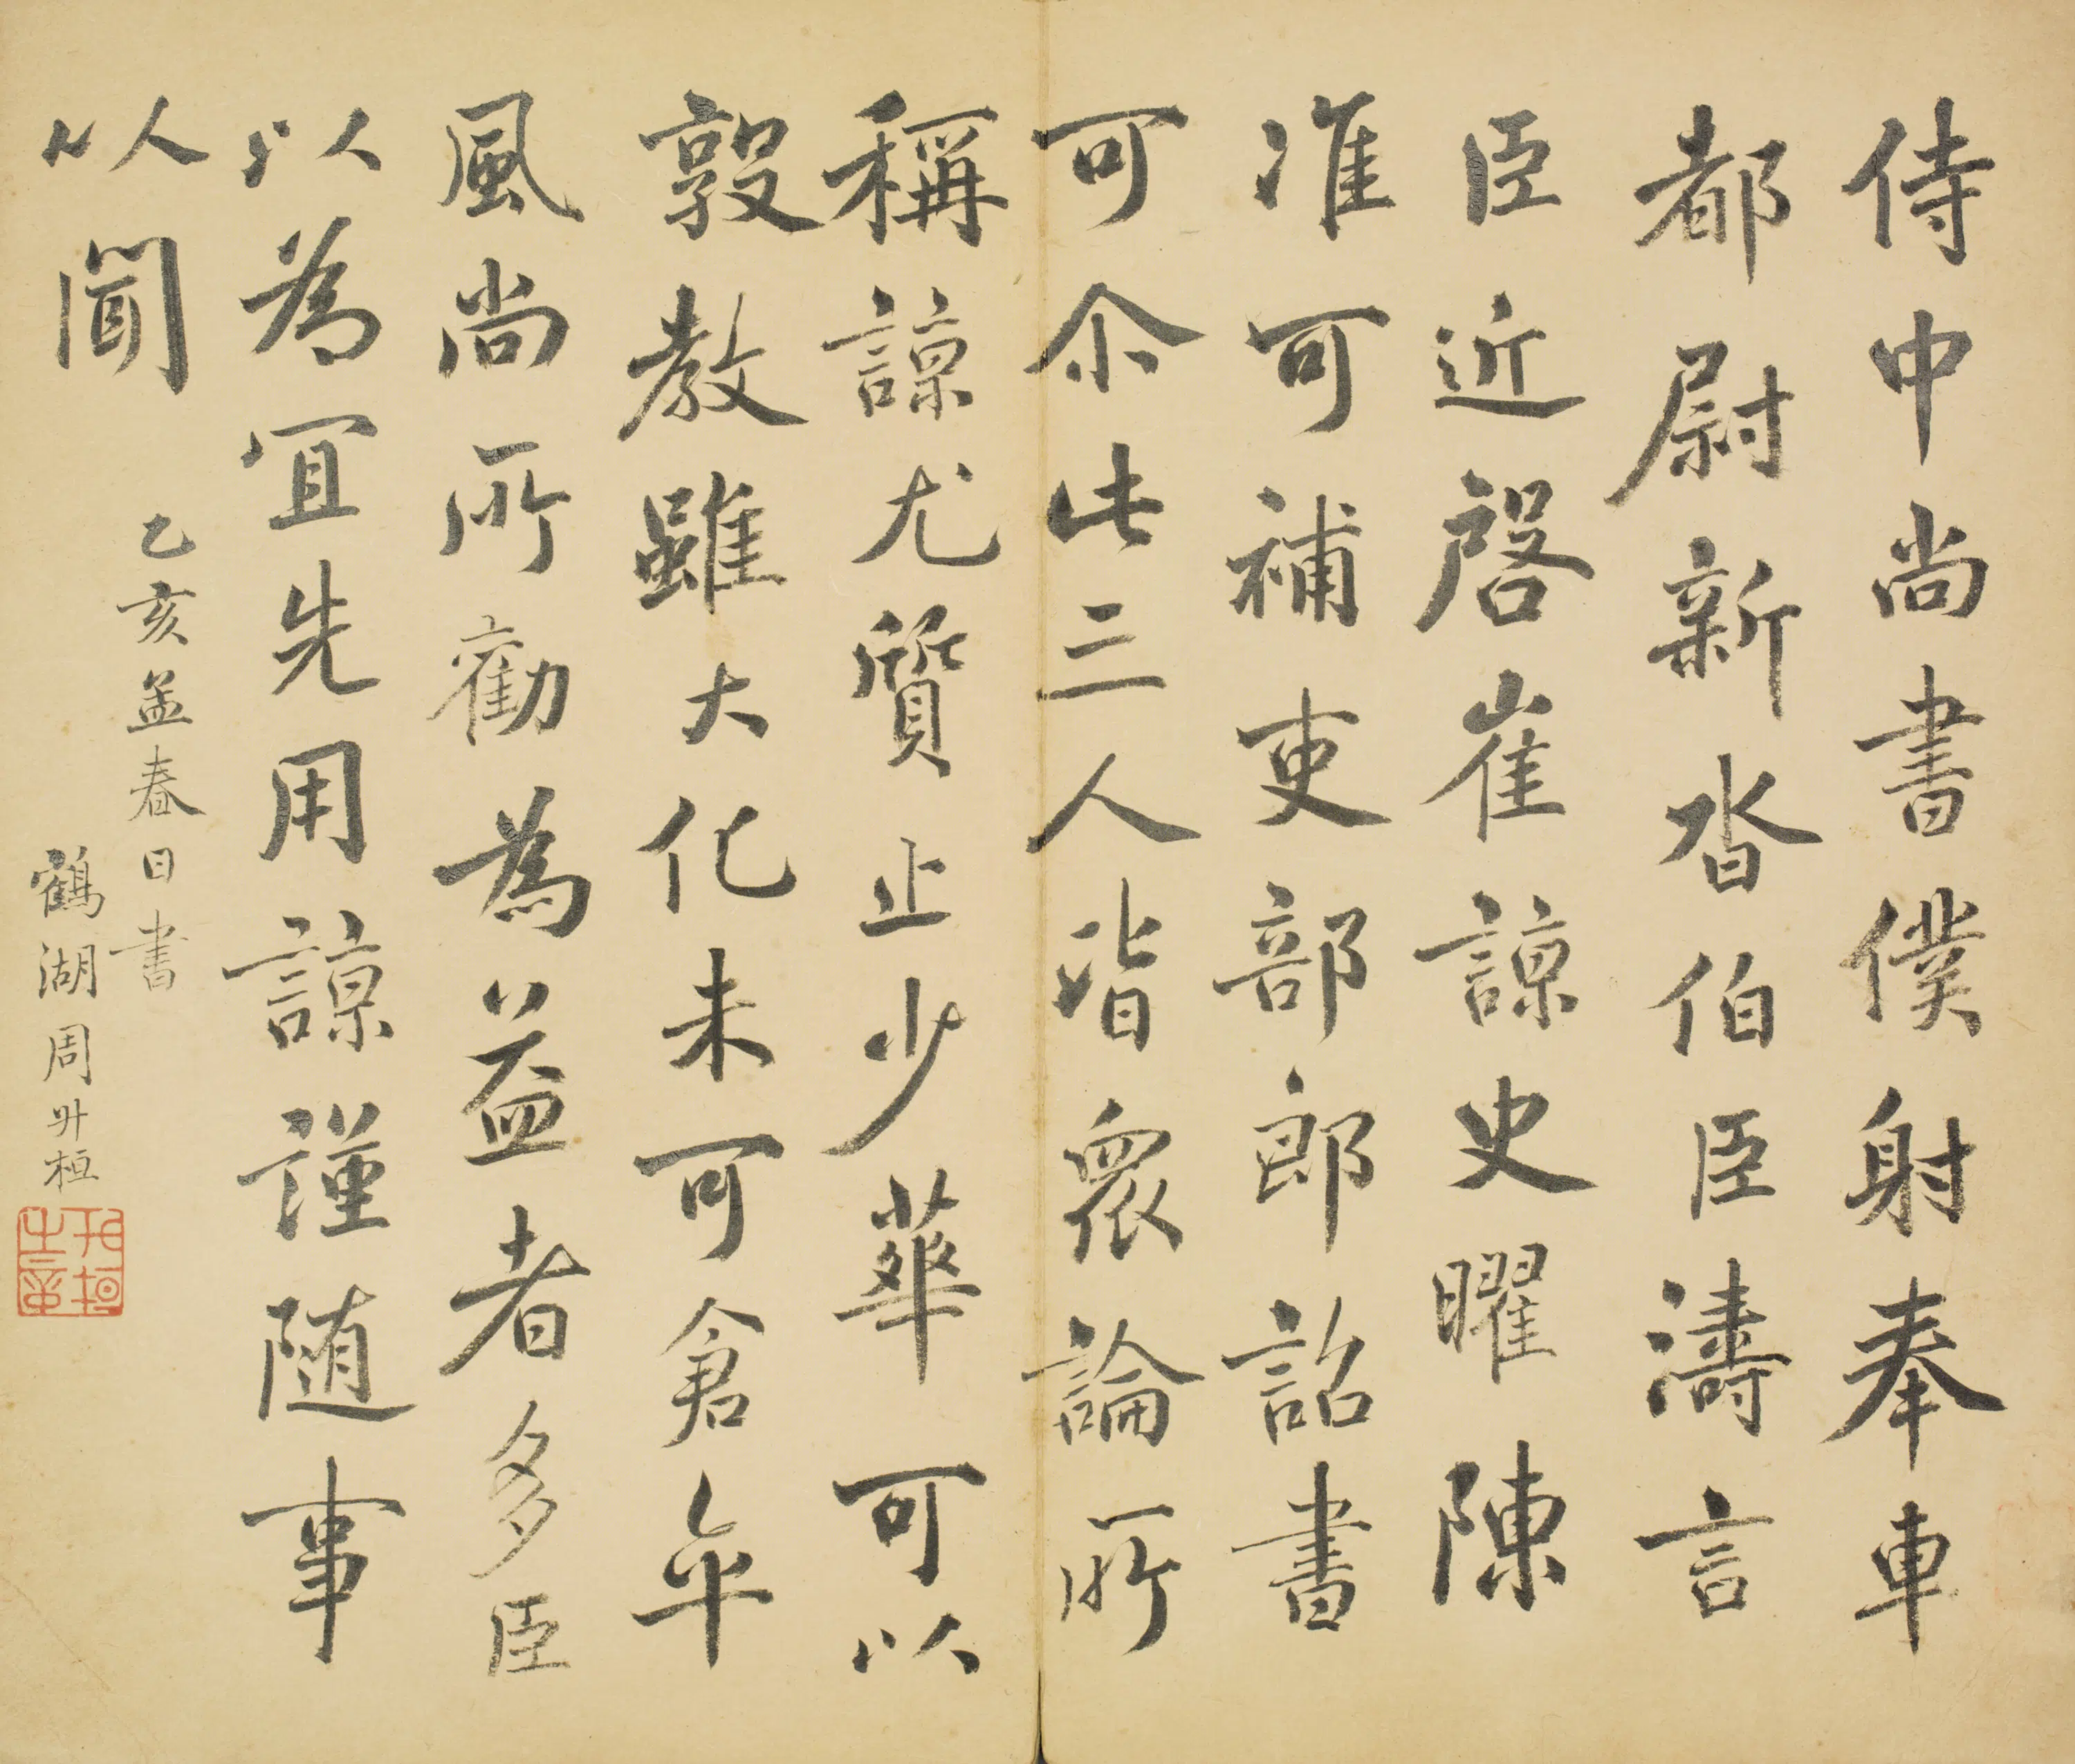 侍中尚書僕射奉車
都尉新沓伯臣濤言
臣近啓崔諒史曜陳
准可補吏部郎詔書
可尒此三人皆衆論所
稱諒尤質止少華可以
敦教雖大化未可倉卒
風尚所勸為益者多臣
以為宜先用諒謹随事
以聞
乙亥孟春日書
鶴湖周升桓